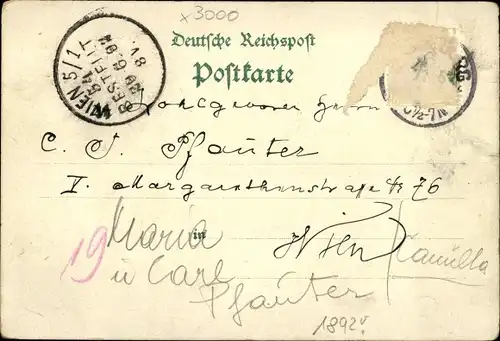 x3000
Deutsche Reichspost
Postkarte
WIEN 5/1
BESTELLT
6½-7N
Wohlgeboren Herrn
C. J. Pfauter
V. Margarethenstraße No 76
in Wien
Maria
19
u Carl
Pfauter
Camilla
1892